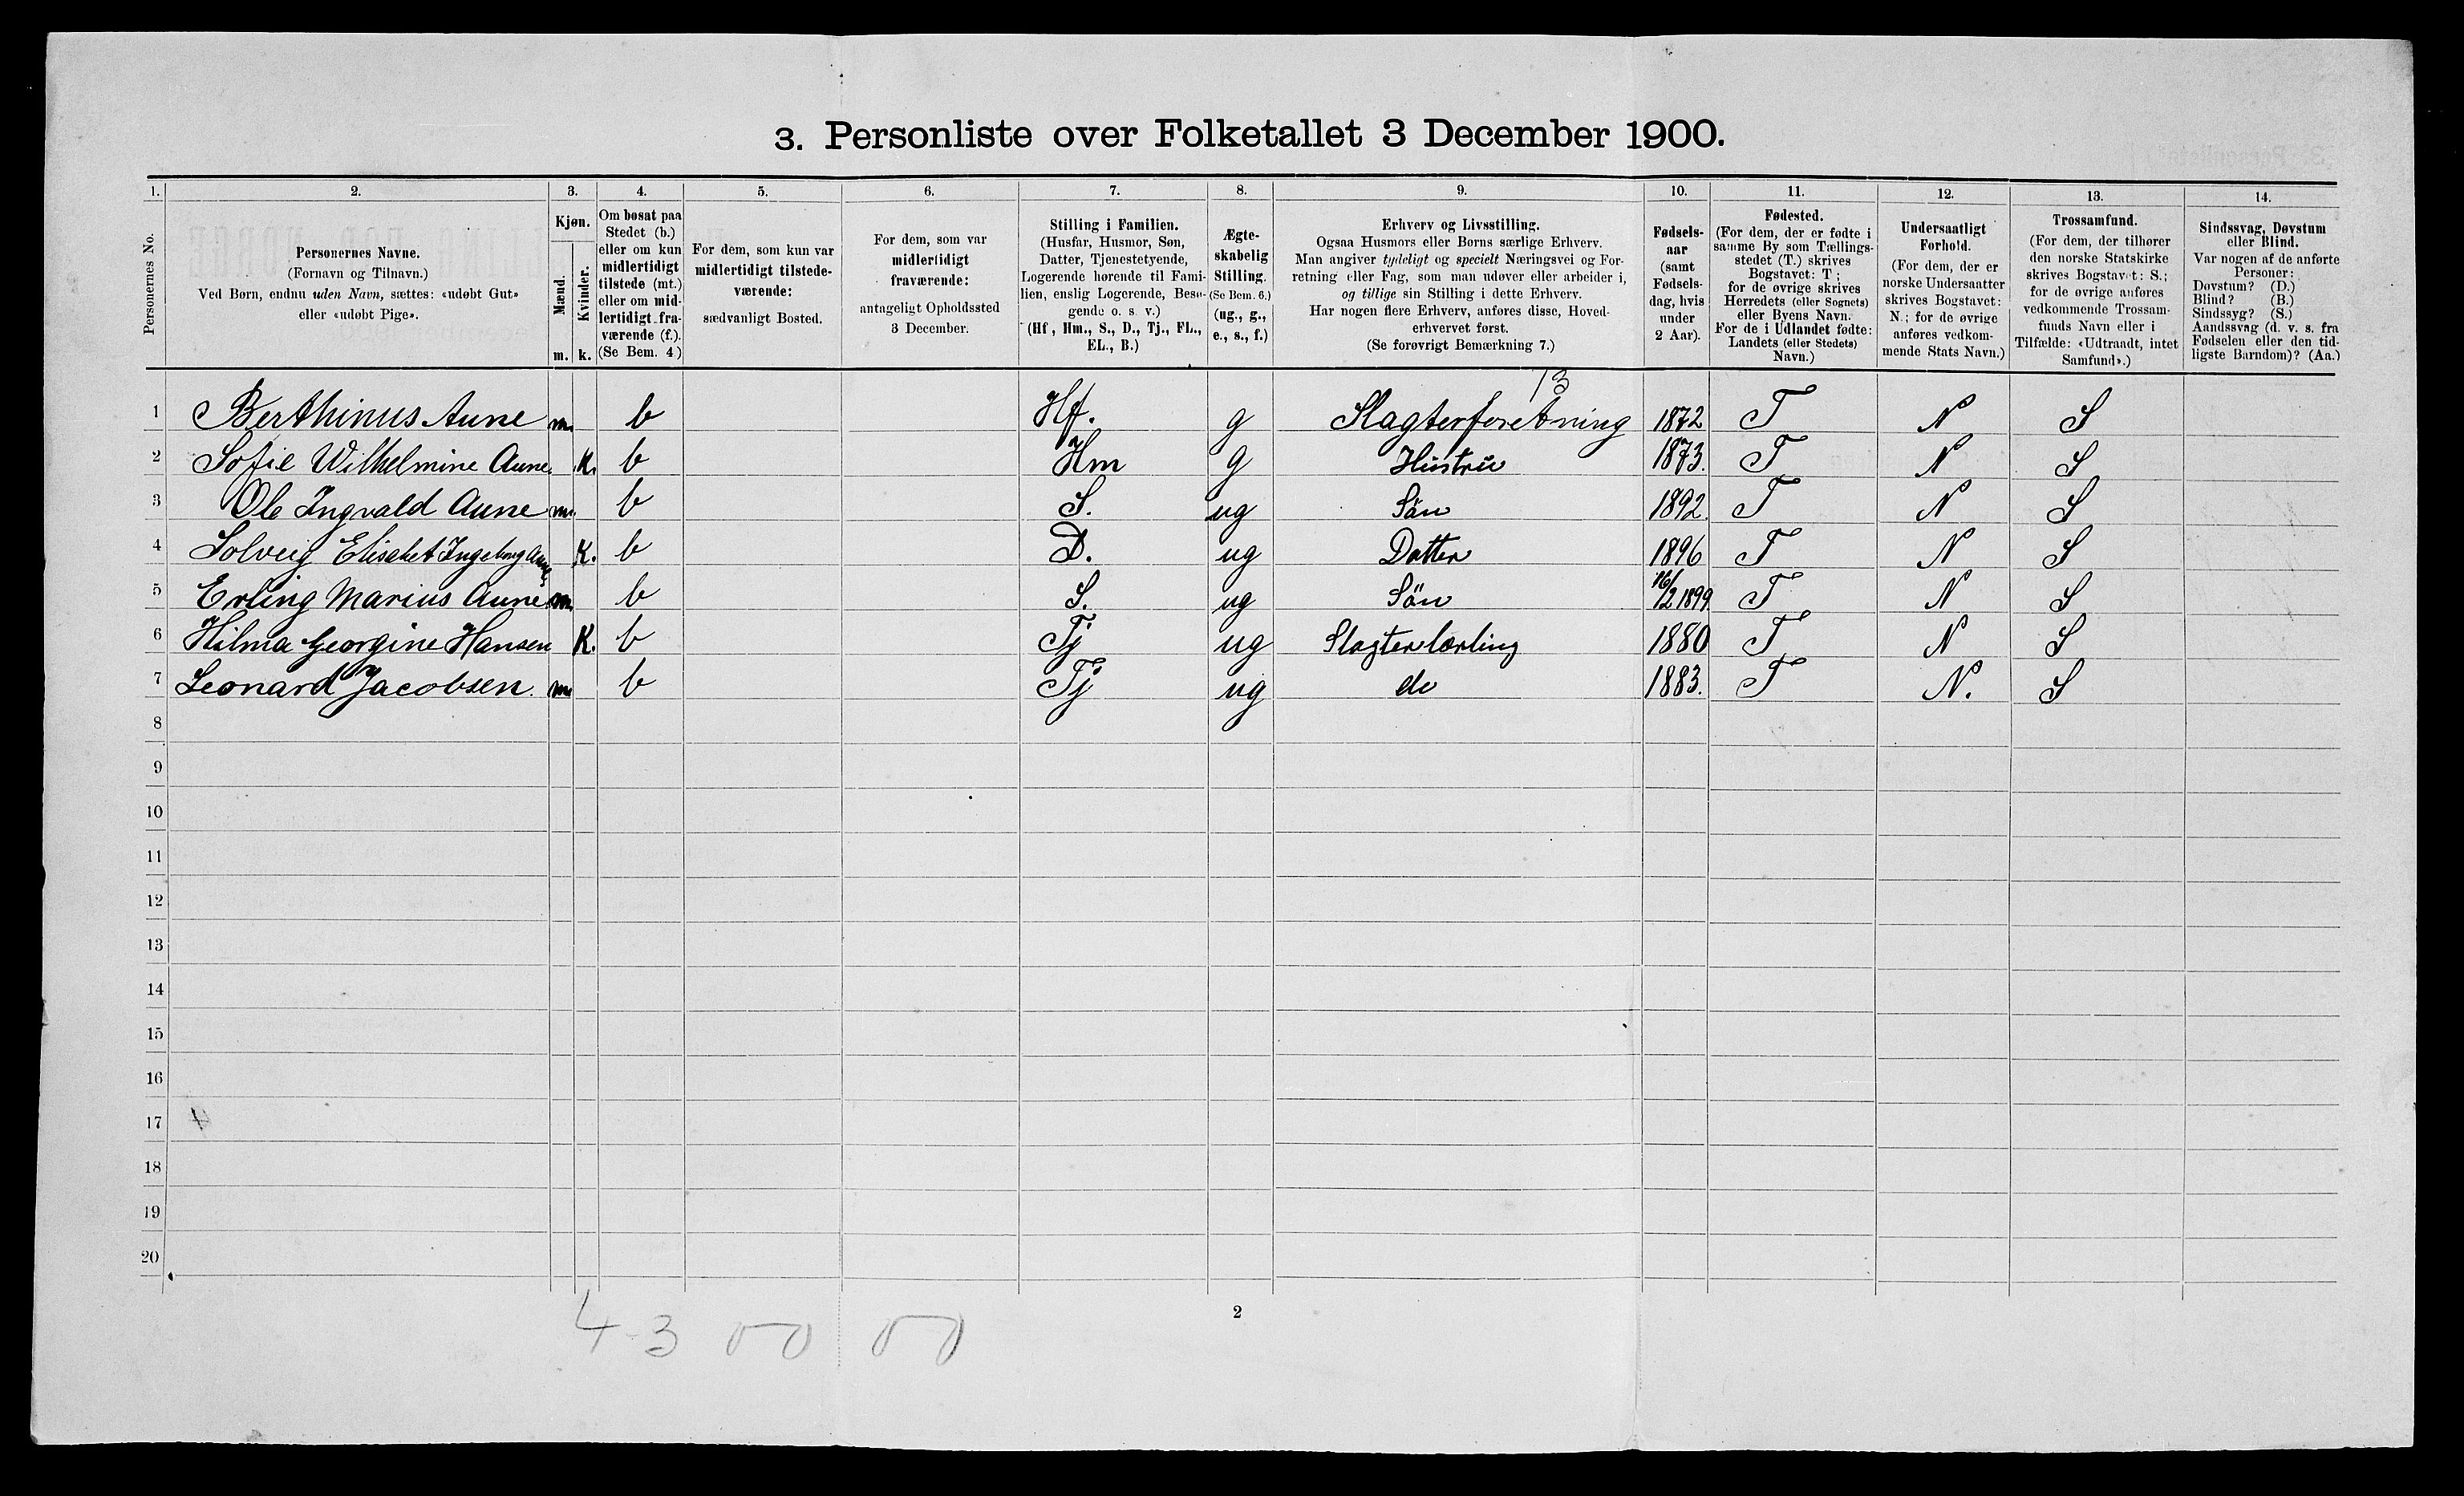 3. Personliste over Folketallet 3 December 1900.
1. 2. 3. 4. 5. 6. 7. 8. 9. 10. 11. 12. 13. 14.
Personernes No.
Personernes Navne.
(Fornavn og Tilnavn.)
Ved Børn, endnu uden Navn, sættes: «udøbt Gut»
eller «udøbt Pige».
Kjøn.
Mænd.
Kvinder.
m. k.
Om bosat paa
Stedet (b.)
eller om kun
midlertidigt
tilstede (mt.)
eller om mid-
lertidigt fra-
værende (f.).
(Se Bem. 4)
For dem, som kun var
midlertidigt tilstede-
værende:
sædvanligt Bosted.
For dem, som var
midlertidigt
fraværende:
antageligt Opholdssted
3 December.
Stilling i Familien.
(Husfar, Husmor, Søn,
Datter, Tjenestetyende,
Logerende hørende til Fami-
lien, enslig Logerende, Besø-
gende o. s. v.)
(Hf, Hm., S., D., Tj., FL.,
EL., B.)
Ægte-
skabelig
Stilling.
(Se Bem. 6.)
(ug., g.,
e., s., f.)
Erhverv og Livsstilling.
Ogsaa Husmors eller Børns særlige Erhverv.
Man angiver tydeligt og specielt Næringsvei og For-
retning eller Fag, som man udøver eller arbeider i,
og tillige sin Stilling i dette Erhverv.
Har nogen flere Erhverv, anføres disse, Hoved-
erhvervet først.
(Se forøvrigt Bemærkning 7.)
Fødsels-
aar
(samt
Fødsels-
dag, hvis
under
2 Aar).
Fødested.
(For dem, der er fødte i
samme By som Tællings-
stedet (T.) skrives
Bogstavet: T;
for de øvrige skrives
Herredets (eller Sognets)
eller Byens Navn.
For de i Udlandet fødte:
Landets (eller Stedets)
Navn.)
Undersaatligt
Forhold.
(For dem, der er
norske Undersaatter
skrives Bogstavet:
N.; for de øvrige
anføres vedkom-
mende Stats Navn.)
Trossamfund.
(For dem, der tilhører
den norske Statskirke
skrives Bogstavet: S.;
for de øvrige anføres
vedkommende Trossam-
funds Navn eller i
Tilfælde: «Udtraadt, intet
Samfund».)
Sindssvag, Døvstum
eller Blind.
Var nogen af de anførte
Personer:
Døvstum? (D.)
Blind? (B.)
Sindssyg? (S.)
Aandssvag (d. v. s. fra
Fødselen eller den tid-
ligste Barndom)? (Aa.)
13
1 Berthinus Aune m. b Hf. g Slagterforetning 1872 T N S
2 Sofie Wilhelmine Aune. K. b Hm g Hustru 1873. T N S
3 Ole Ingvald Aune m. b S. ug Sön 1892. T N S
4 Solveig Elisabet Ingeborg Aune. K. b D. ug Datter 1896 T N S
5 Erling Marius Aune m. b S. ug Sön 16/12 1899. T N S
6 Hilma Georgine Hansen K. b Tj ug Slagterlærling 1880 T N S
7 Leonard Jacobsen. m b Tj ug do 1883. T N. S
8
9
10
11
12
13
14
15
16
17
18
19
20
2
4-3 00 00